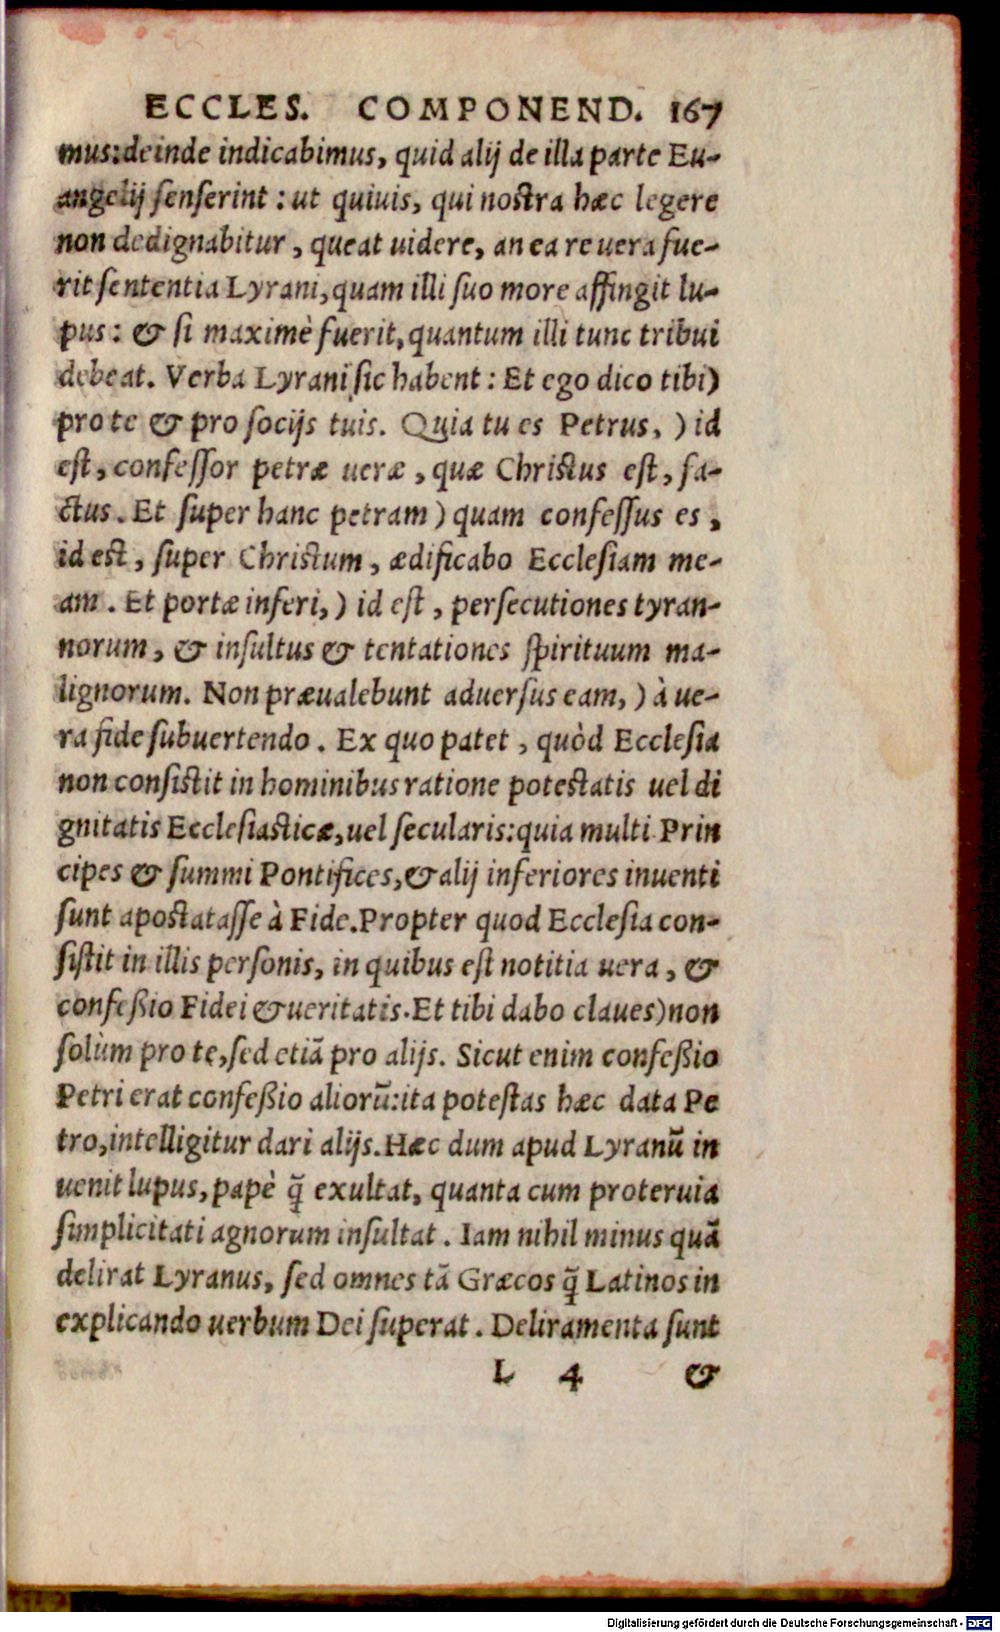 ECCLES. COMPONEND. 167
mus: deinde indicabimus, quid alij de illa parte Eu-
angelij senserint : ut quiuis, qui nostra hæc legere
non dedignabitur, queat uidere, an ea re uera fue-
rit sententia Lyrani, quam illi suo more affingit lu-
pus: & si maximè fuerit, quantum illi tunc tribui
debeat. Verba Lyrani sic habent: Et ego dico tibi)
pro te & pro socijs tuis. Quia tu es Petrus, ) id
est, confessor petræ ueræ, quæ Christus est, fa-
ctus. Et super hanc petram ) quam confessus es,
id est, super Christum, ædificabo Ecclesiam me-
am. Et portæ inferi, ) id est, persecutiones tyran-
norum, & insultus & tentationes spirituum ma-
lignorum. Non præualebunt aduersus eam, ) à ue-
ra fide subuertendo. Ex quo patet, quòd Ecclesia
non consistit in hominibus ratione potestatis uel di
gnitatis Ecclesiasticæ, uel secularis: quia multi Prin
cipes & summi Pontifices, & alij inferiores inuenti
sunt apostatasse à Fide. Propter quod Ecclesia con-
sistit in illis personis, in quibus est notitia uera, &
confeßio Fidei & ueritatis. Et tibi dabo claues) non
solùm pro te, sed etiã pro alijs. Sicut enim confeßio
Petri erat confeßio aliorũ: ita potestas hæc data Pe
tro, intelligitur dari alijs. Hæc dum apud Lyranũ in
uenit lupus, papè q̃ exultat, quanta cum proteruia
simplicitati agnorum insultat. Iam nihil minus quã
delirat Lyranus, sed omnes tã Græcos q̃ Latinos in
explicando uerbum Dei superat. Deliramenta sunt
L 4 &
Digitalisierung gefördert durch die Deutsche Forschungsgemeinschaft - DFG